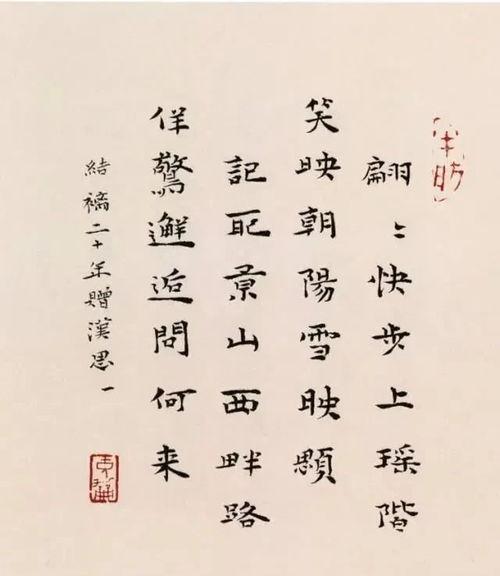 翩〻快步上瑤階
笑映朝陽雪映顋
記取景山西畔路
佯驚邂逅問何来
結褵二十年贈漢思 一
充龢